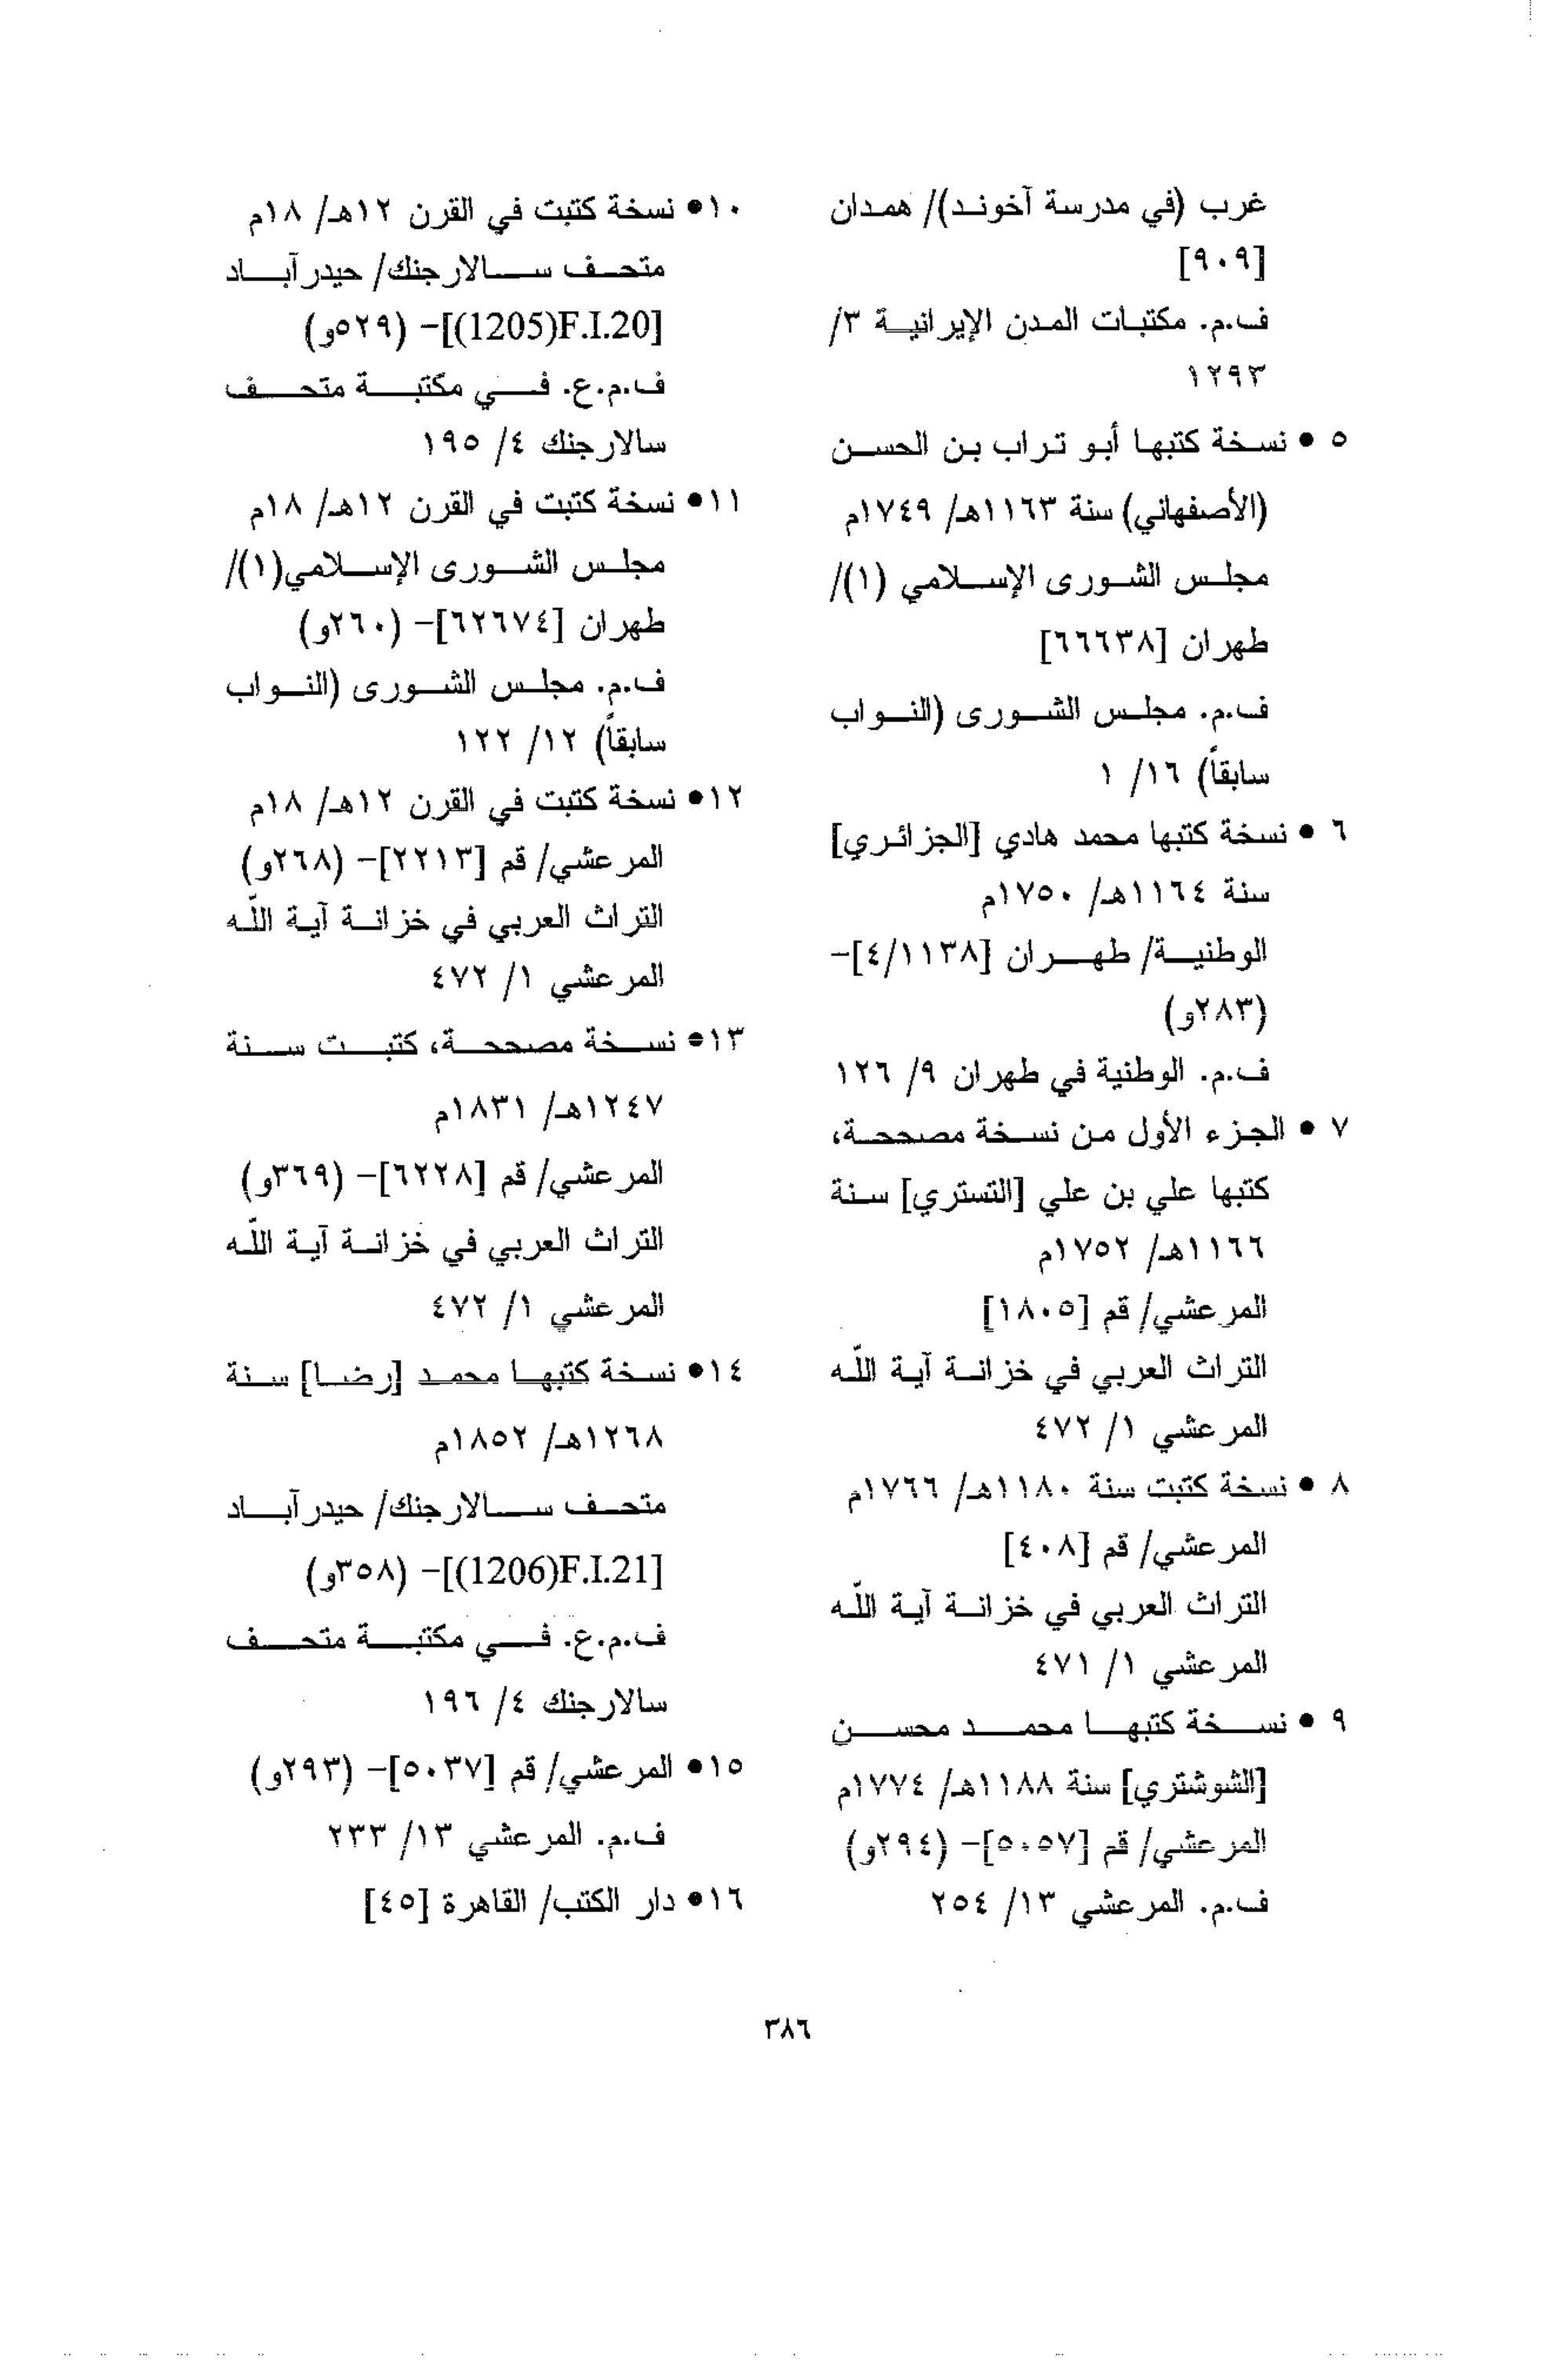 غرب (في مدرسة آخوند)/ همدان
[٩٠٩]
ف.م. مكتبات المدن الإيرانية ٣/
١٢٩٣
٥ • نسخة كتبها أبو تراب بن الحسن
(الأصفهاني) سنة ١١٦٣هـ/ ١٧٤٩م
مجلس الشورى الإسلامي (١)/
طهران [٦٦٦٣٨]
ف.م. مجلس الشورى (النواب
سابقاً) ١٦/ ١
٦ • نسخة كتبها محمد هادي [الجزائري]
سنة ١١٦٤هـ/ ١٧٥٠م
الوطنية/ طهران [٤/١١٣٨]-
(٢٨٣و)
ف.م. الوطنية في طهران ٩/ ١٢٦
٧ • الجزء الأول من نسخة مصححة،
كتبها علي بن علي [التستري] سنة
١١٦٦هـ/ ١٧٥٢م
المرعشي/ قم [١٨٠٥]
التراث العربي في خزانة آية اللّه
المرعشي ١/ ٤٧٢
٨ • نسخة كتبت سنة ١١٨٠هـ/ ١٧٦٦م
المرعشي/ قم [٤٠٨]
التراث العربي في خزانة آية اللّه
المرعشي ١/ ٤٧١
٩ • نسخة كتبها محمد محسن
[الشوشتري] سنة ١١٨٨هـ/ ١٧٧٤م
المرعشي/ قم [٥٠٥٧]- (٢٩٤و)
ف.م. المرعشي ١٣/ ٢٥٤
١٠• نسخة كتبت في القرن ١٢هـ/ ١٨م
متحف سالارجنك/ حيدرآباد
[(1205)F.I.20]- (٥٢٩و)
ف.م.ع. في مكتبة متحف
سالارجنك ٤/ ١٩٥
١١• نسخة كتبت في القرن ١٢هـ/ ١٨م
مجلس الشورى الإسلامي(١)/
طهران [٦٢٦٧٤]- (٢٦٠و)
ف.م. مجلس الشورى (النواب
سابقاً) ١٢/ ١٢٢
١٢• نسخة كتبت في القرن ١٢هـ/ ١٨م
المرعشي/ قم [٢٢١٣]- (٢٦٨و)
التراث العربي في خزانة آية اللّه
المرعشي ١/ ٤٧٢
١٣• نسخة مصححة، كتبت سنة
١٢٤٧هـ/ ١٨٣١م
المرعشي/ قم [٦٢٢٨]- (٣٦٩و)
التراث العربي في خزانة آية اللّه
المرعشي ١/ ٤٧٢
١٤• نسخة كتبها محمد [رضا] سنة
١٢٦٨هـ/ ١٨٥٢م
متحف سالارجنك/ حيدرآباد
[(1206)F.I.21]- (٣٥٨و)
ف.م.ع. في مكتبة متحف
سالارجنك ٤/ ١٩٦
١٥• المرعشي/ قم [٥٠٣٧]- (٢٩٣و)
ف.م. المرعشي ١٣/ ٢٣٣
١٦• دار الكتب/ القاهرة [٤٥]
٣٨٦